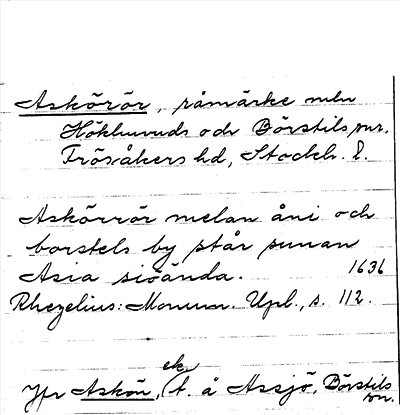 Askörör, råmärke mln
Hökhuvuds och Börstils snr.
Frösåkers hd, Stockh. l.
Askörrör melan åni och
borstels by står sunan
Asia siöända. 1636
Rhezelius: Monum. Upl., s. 112.
Jfr Askön, ek. t. å Assjö, Börstils
sn.